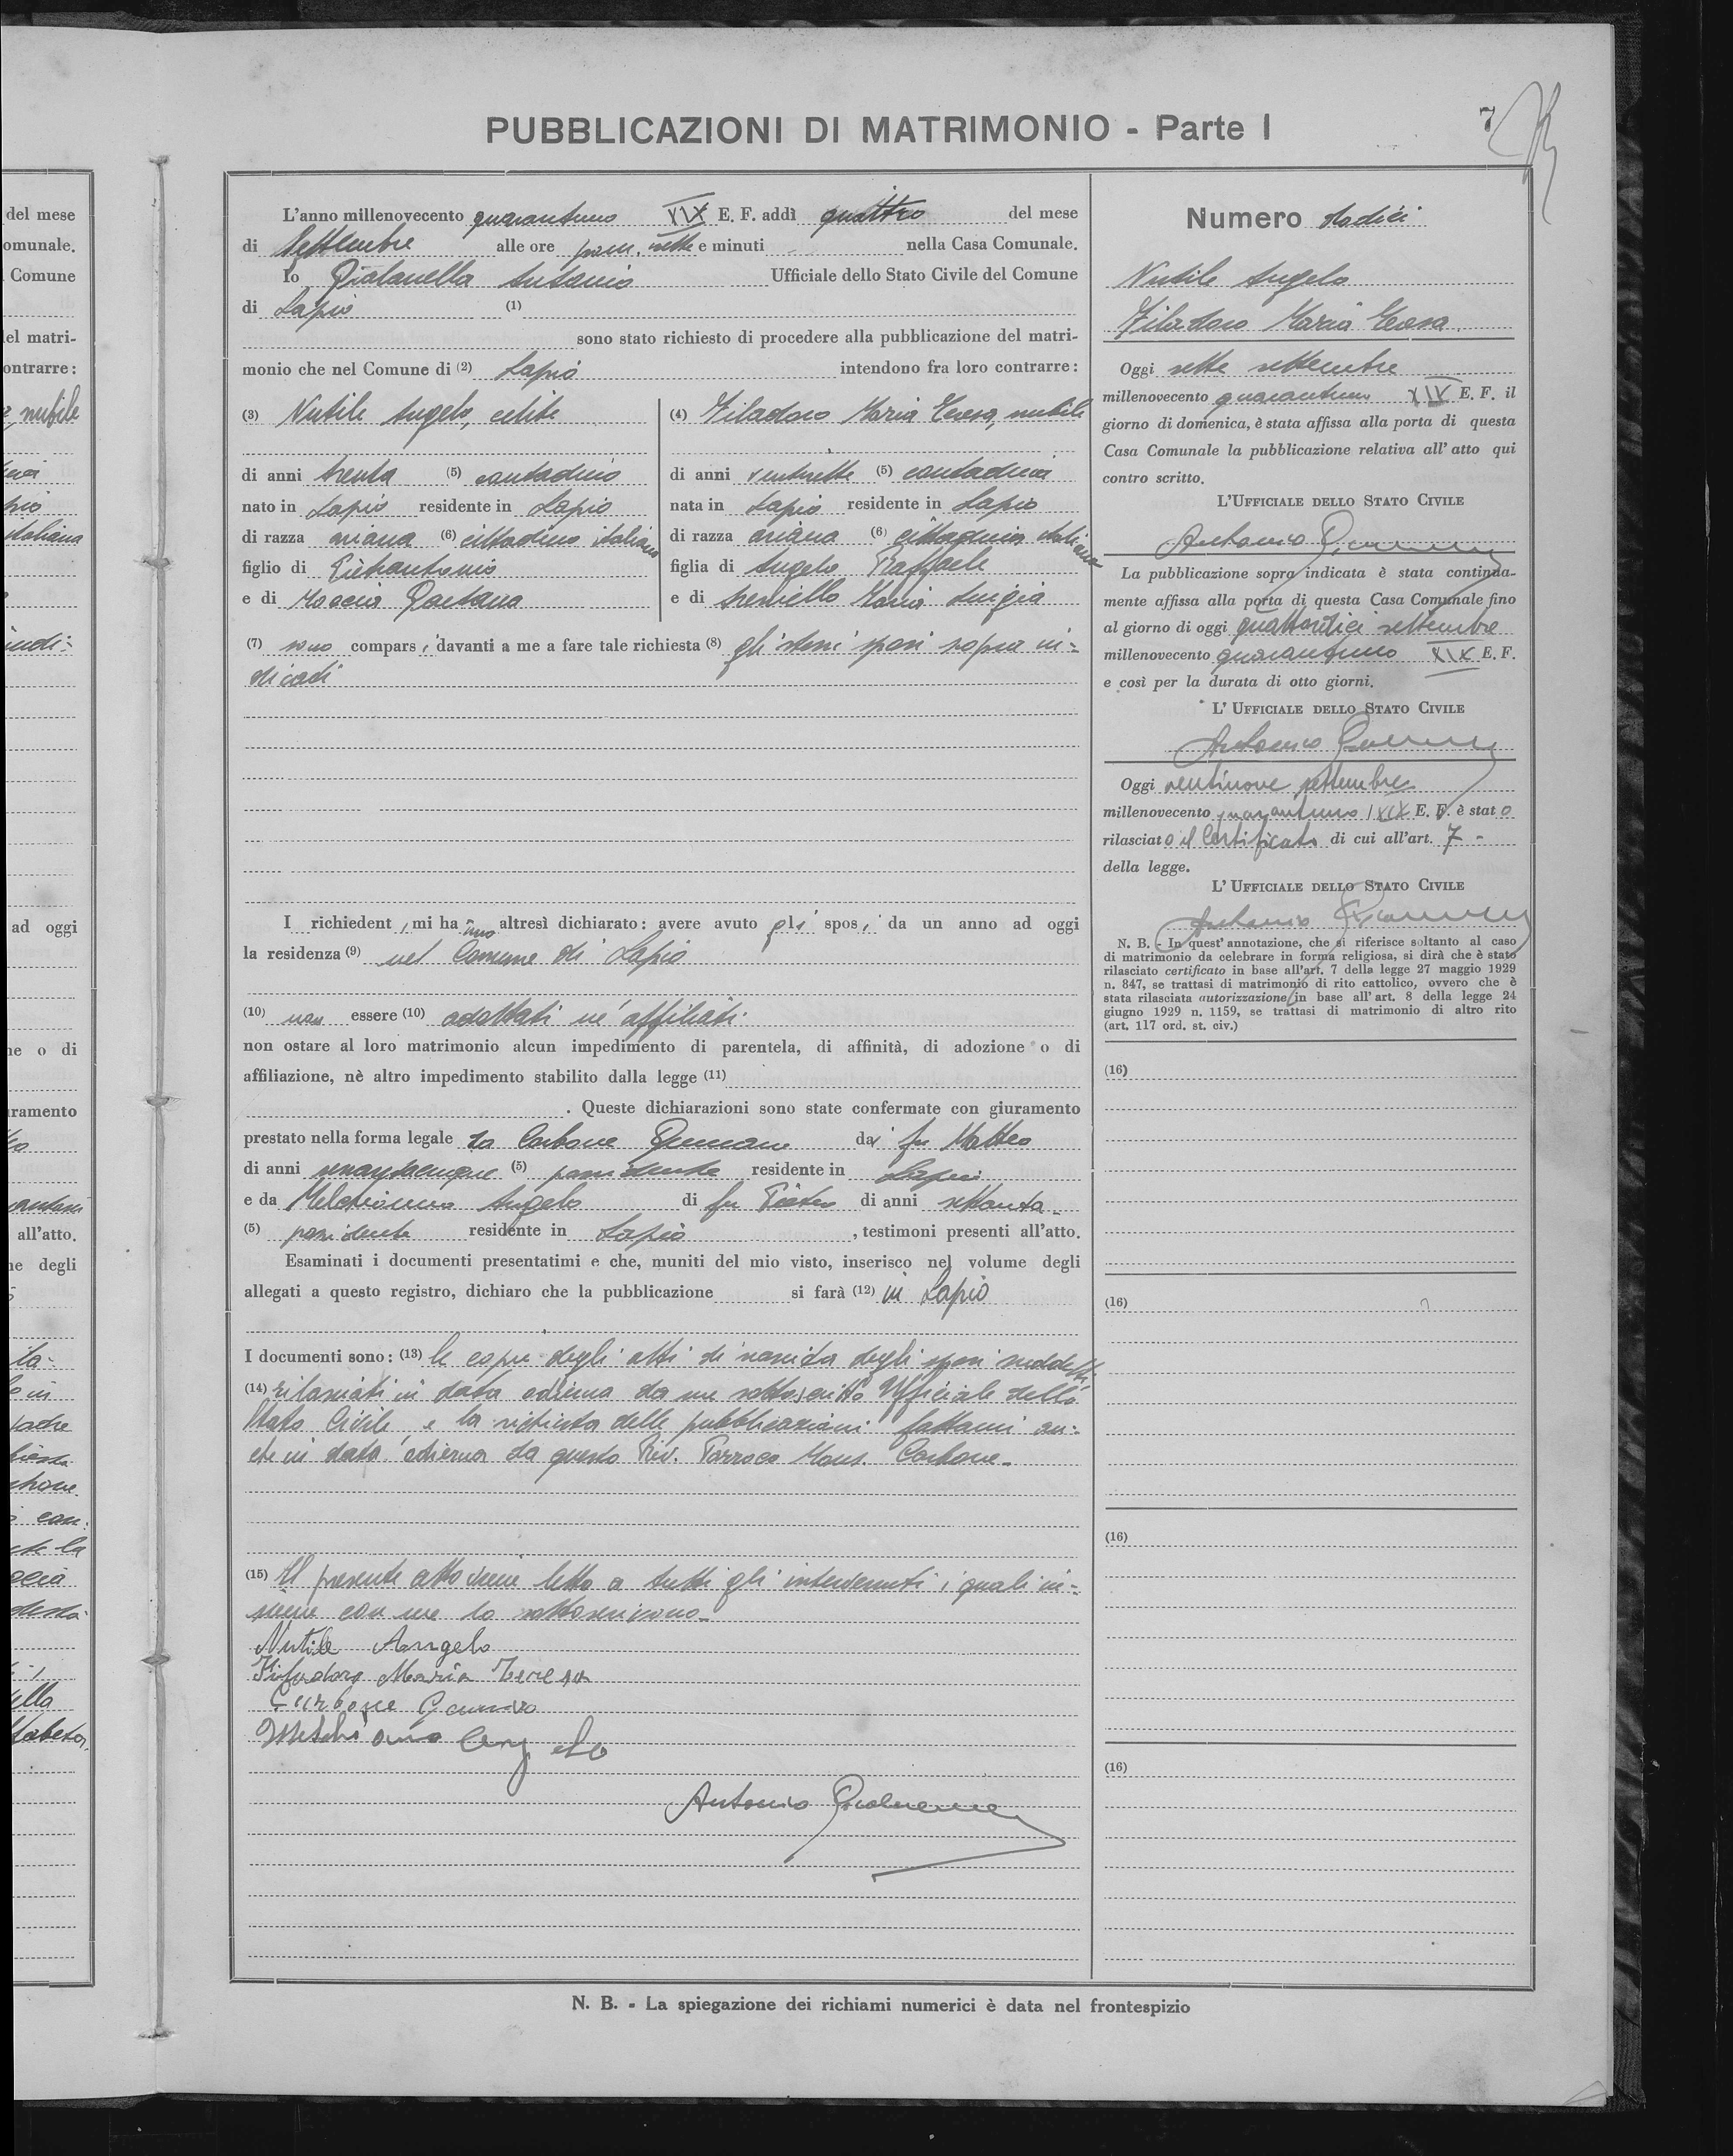 PUBBLICAZIONI DI MATRIMONIO - Parte I
7
L'anno millenovecento quarantuno XIX E. F. addì quattro del mese
di Settembre alle ore pom. sette e minuti nella Casa Comunale.
Io Antonio Ufficiale dello Stato Civile del Comune
di Lapio (1)
sono stato richiesto di procedere alla pubblicazione del matri-
monio che nel Comune di (2) Lapio intendono fra loro contrarre:
(3) Nutile Angelo, celibe
di anni trenta (5) contadino
nato in Lapio residente in Lapio
di razza ariana (6) cittadino italiano
figlio di Pietrantonio
e di Gaetana
(4) Filadoro Maria Teresa, nubile
di anni ventisette (5) contadina
nata in Lapio residente in Lapio
di razza ariana (6) cittadina italiana
figlia di Angelo Raffaele
e di Maria Luigia
(7) sono compars i davanti a me a fare tale richiesta (8) gli stessi sposi sopra in=
dicati
I richiedent i mi ha nno altresì dichiarato: avere avuto gli spos i da un anno ad oggi
la residenza (9) nel Comune di Lapio
(10) non essere (10) adottati né affiliati
non ostare al loro matrimonio alcun impedimento di parentela, di affinità, di adozione o di
affiliazione, nè altro impedimento stabilito dalla legge (11)
. Queste dichiarazioni sono state confermate con giuramento
prestato nella forma legale da Carbone di fu Matteo
di anni sessantacinque (5) possidente residente in Lapio
e da Melchionno Angelo di fu Pietro di anni settanta
(5) possidente residente in Lapio , testimoni presenti all'atto.
Esaminati i documenti presentatimi e che, muniti del mio visto, inserisco nel volume degli
allegati a questo registro, dichiaro che la pubblicazione si farà (12) in Lapio
I documenti sono: (13) le copie degli atti di nascita degli sposi suddetti
(14) rilasciati in data odierna da me sottoscritto Ufficiale dello
Stato Civile, e la richiesta delle pubblicazioni fattami an=
che in data odierna da questo Rev. Parroco Mons. Carbone.
(15) Il presente atto viene letto a tutti gli intervenuti i quali in=
sieme con me lo sottoscrivono.
Nutile Angelo
Filadoro Maria Teresa
Carbone
Melchionno Angelo
Antonio
Numero dodici
Nutile Angelo
Filadoro Maria Teresa
Oggi sette settembre
millenovecento quarantuno XIX E. F. il
giorno di domenica, è stata affissa alla porta di questa
Casa Comunale la pubblicazione relativa all'atto qui
contro scritto.
L'UFFICIALE DELLO STATO CIVILE
Antonio
La pubblicazione sopra indicata è stata continua-
mente affissa alla porta di questa Casa Comunale fino
al giorno di oggi quattordici settembre
millenovecento quarantuno XIX E. F.
e così per la durata di otto giorni.
L'UFFICIALE DELLO STATO CIVILE
Antonio
Oggi ventinove settembre
millenovecento quarantuno XIX E. F. è stat o
rilasciat o il Certificato di cui all'art. 7 -
della legge.
L'UFFICIALE DELLO STATO CIVILE
Antonio
N. B. - In quest'annotazione, che si riferisce soltanto al caso
di matrimonio da celebrare in forma religiosa, si dirà che è stato
rilasciato certificato in base all'art. 7 della legge 27 maggio 1929
n. 847, se trattasi di matrimonio di rito cattolico, ovvero che è
stata rilasciata autorizzazione in base all'art. 8 della legge 24
giugno 1929 n. 1159, se trattasi di matrimonio di altro rito
(art. 117 ord. st. civ.)
(16)
(16)
(16)
(16)
N. B. - La spiegazione dei richiami numerici è data nel frontespizio